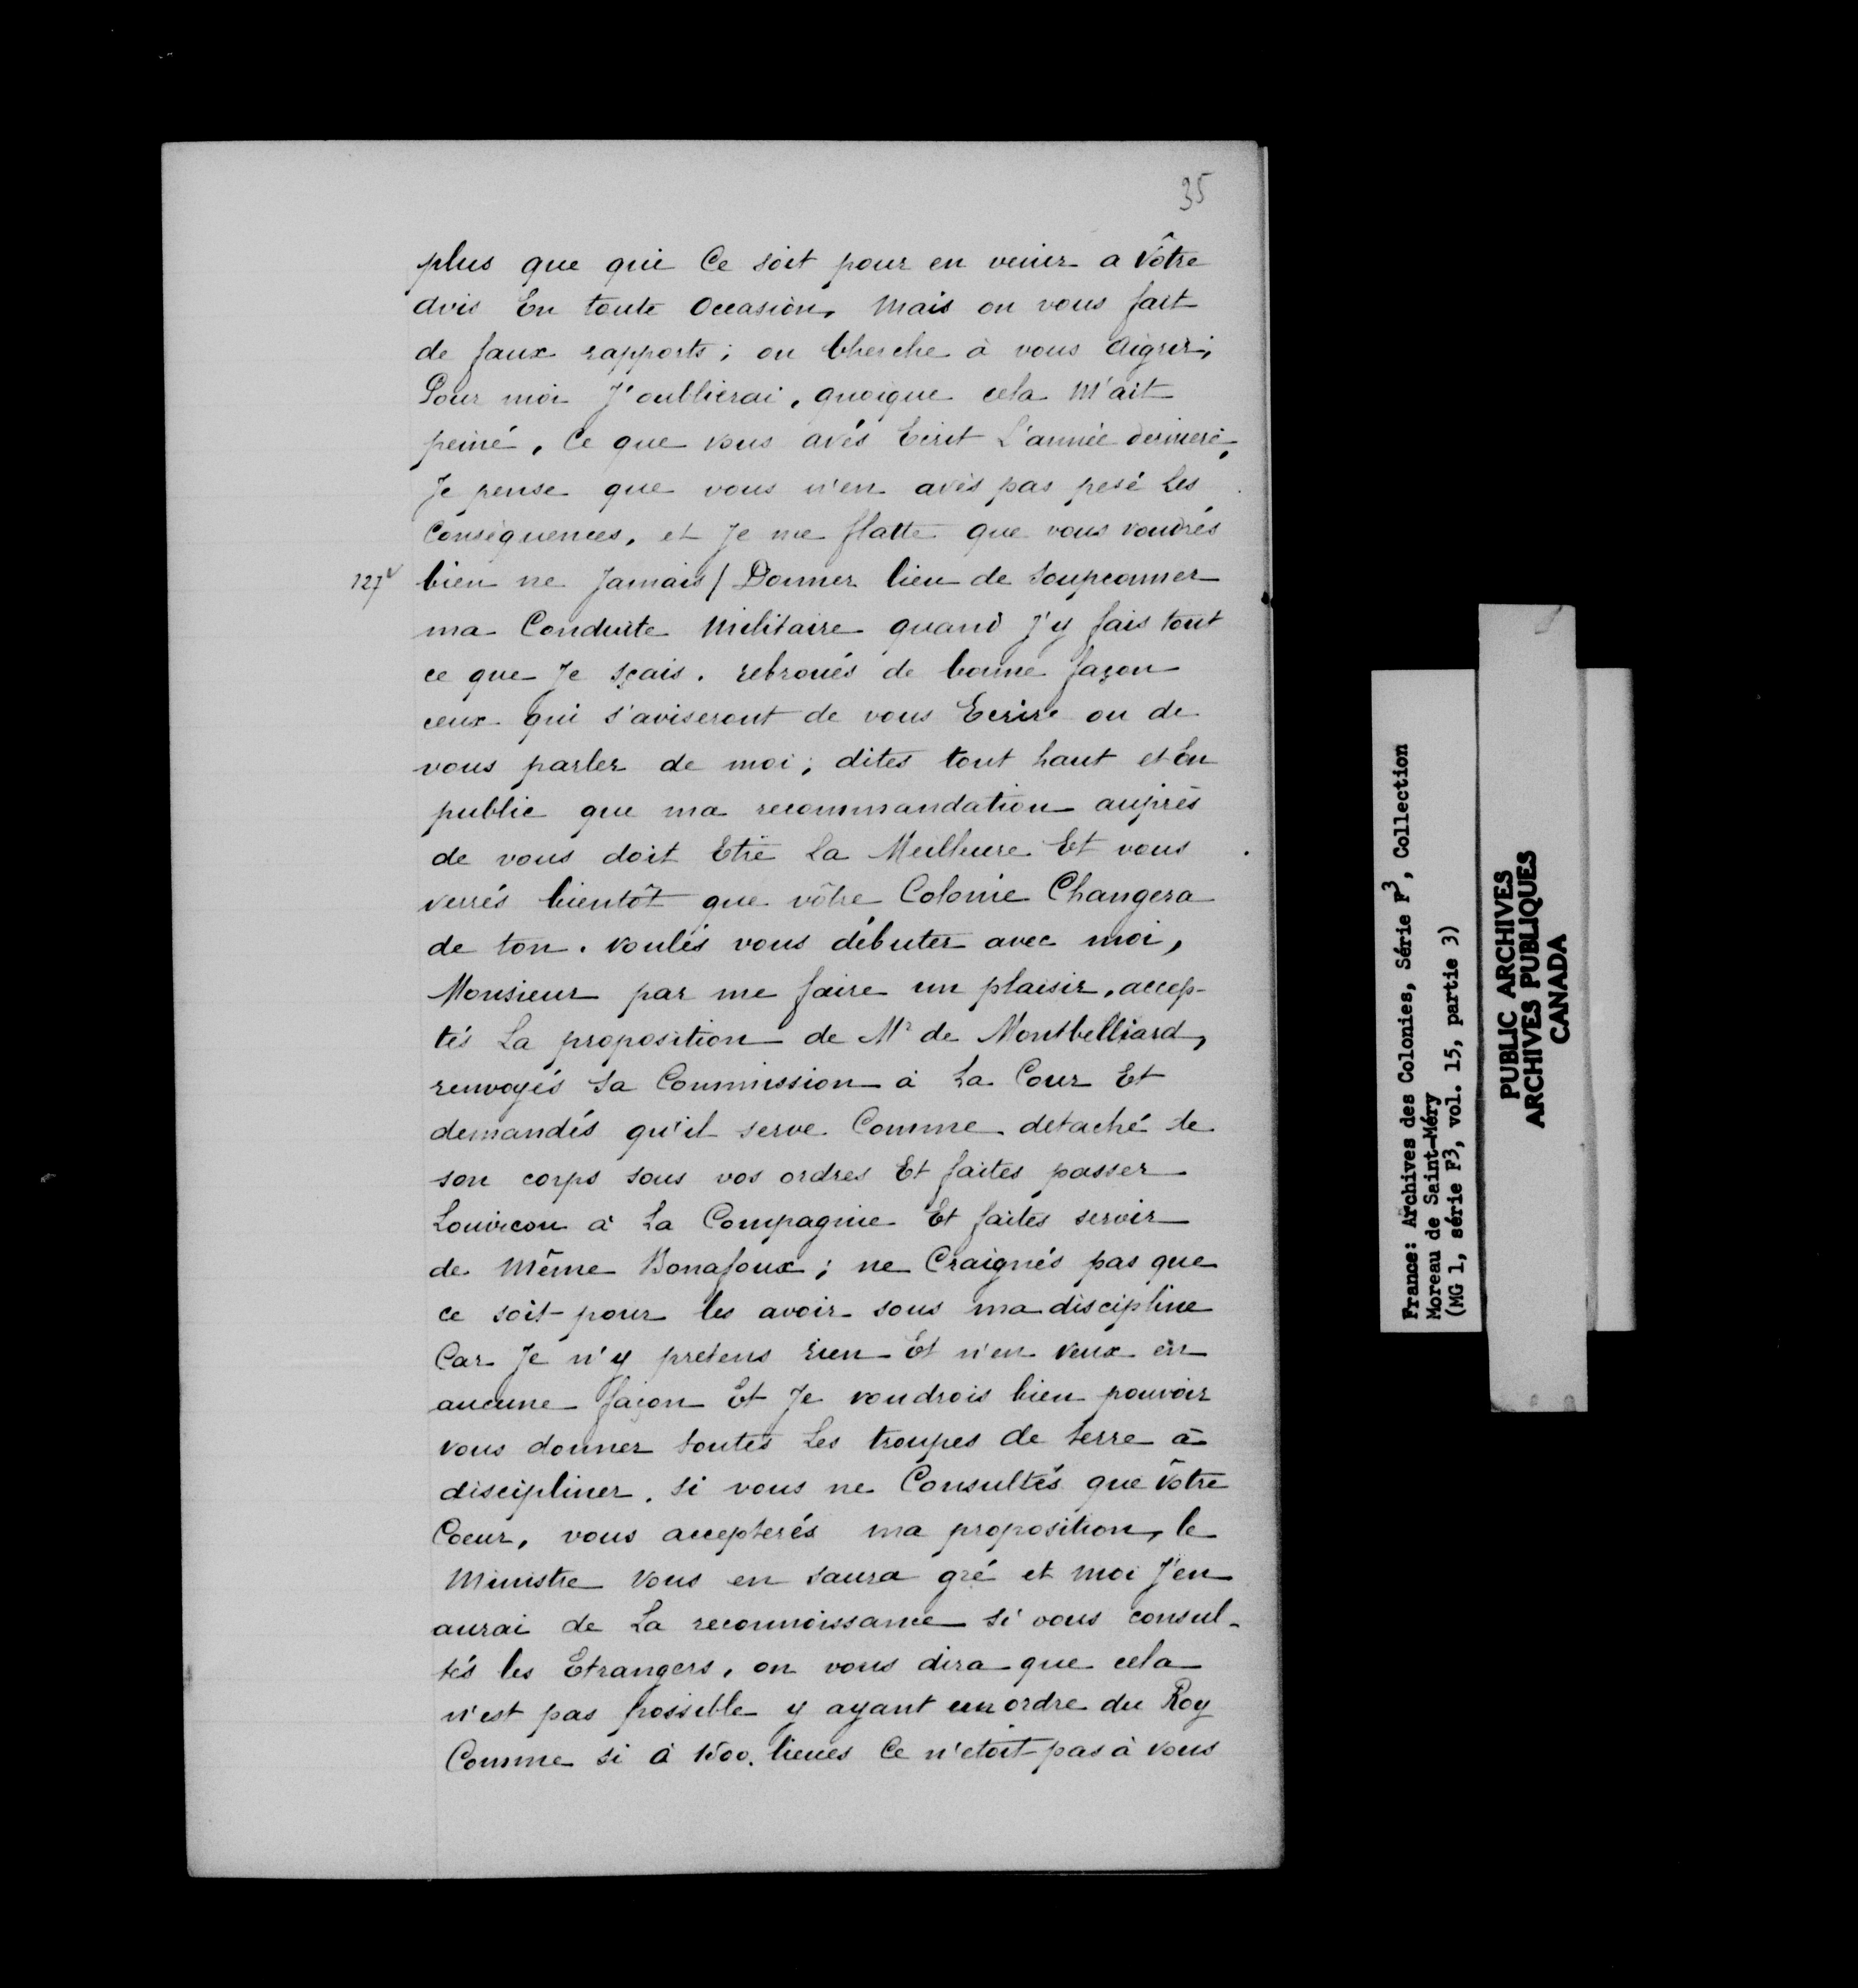 35
plus que qui Ce soit pour en venir a Vôtre
avis En toute Occasion, Mais on vous fait
de faux rapports ; on Cherche à vous Aigrir,
Pour moi J'oublierai, quoique cela M'ait
peiné, Ce que vous avés Ecrit L'année derniere,
Je pense que vous n'en avés pas pesé Les
Conséquences, et Je me flatte que vous voudrés
127v bien ne Jamais / Donner lieu de Soupconner
ma Conduite Militaire quand J'y fais tout
ce que Je sçais. rebroués de bonne façon
ceux qui s'aviseront de vous Ecrire ou de
vous parler de moi ; dites tout haut et En
public que ma recommandation auprès
de vous doit Etre La Meilleure Et vous
verrés bientôt que vôtre Colonie Changera
de ton. voulés vous débuter avec moi,
Monsieur par me faire un plaisir, accep-
tés La proposition de Mr de Montbelliard,
renvoyés Sa Commission à La Cour Et
demandés qu'il serve Comme detaché de
son corps sous vos ordres Et faites passer
Louvicou à La Compagnie Et faites servir
de Même Bonafoux ; ne Craignés pas que
ce soit pour les avoir sous ma discipline
Car Je n'y pretens rien Et n'en Veux en
aucune façon Et Je voudrois bien pouvoir
vous donner toutes Les troupes de terre à
discipliner. Si vous ne Consultés que Vôtre
Coeur, vous accepterés ma proposition, le
Ministre Vous en Saura gré et Moi J'en
aurai de La reconnoissance Si vous consul-
tés les Etrangers, on vous dira que cela
n'est pas possible y ayant un ordre du Roy
Comme si à 1500. lieues Ce n'etoit pas à vous
France: Archives des Colonies, Série F3, Collection
Moreau de Saint-Méry
(MG 1, série F3, vol. 15, partie 3)
PUBLIC ARCHIVES
ARCHIVES PUBLIQUES
CANADA